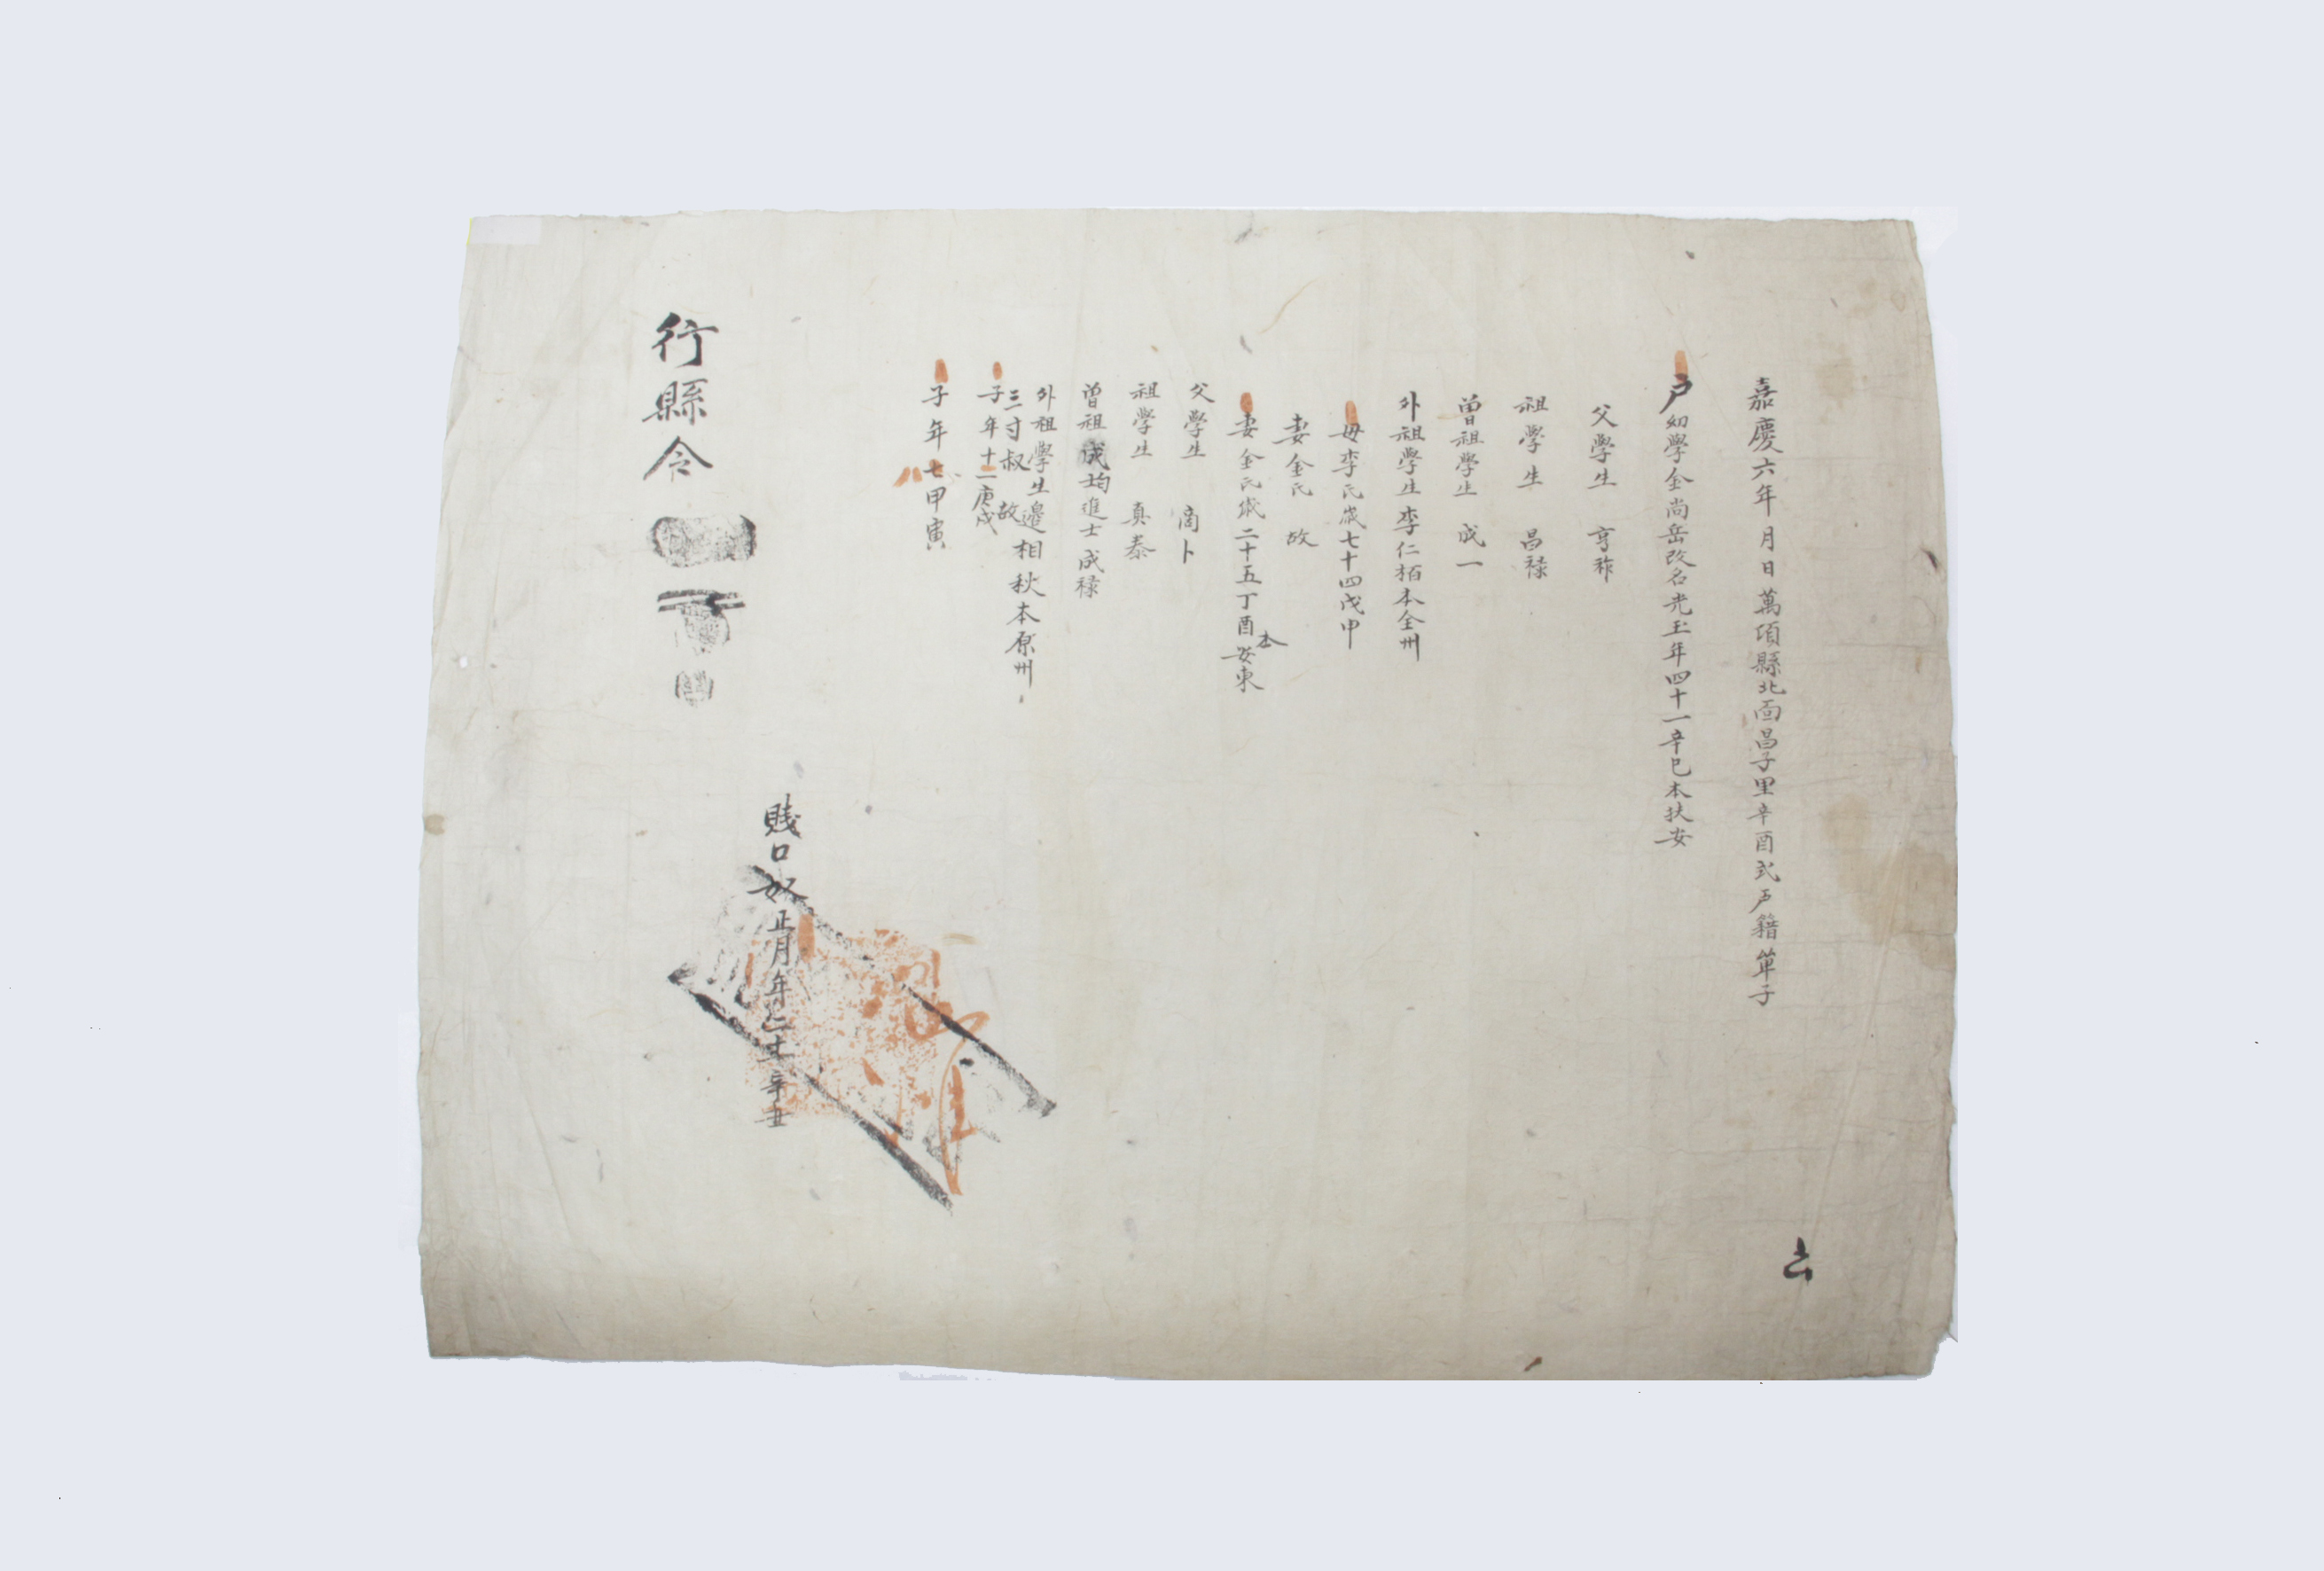 嘉慶六年 月 日 萬頃縣北面昌子里辛酉式戶籍單子
戶幼學金尚岳改名光玉年四十一辛巳本扶安
父學生 亨祚
祖學生 昌祿
曾祖學生 成一
外祖學生李仁栢本全州
母李氏歲七十四戊申
妻金氏 故
妻金氏歲二十五丁酉本安東
父學生 卜
祖學生 真泰
曾祖成均進士 成祿
外祖學生邊相秋本原州
三寸叔 故
子年十二庚戌
子年七八甲寅
賤口奴正月年二十 辛丑
行縣令